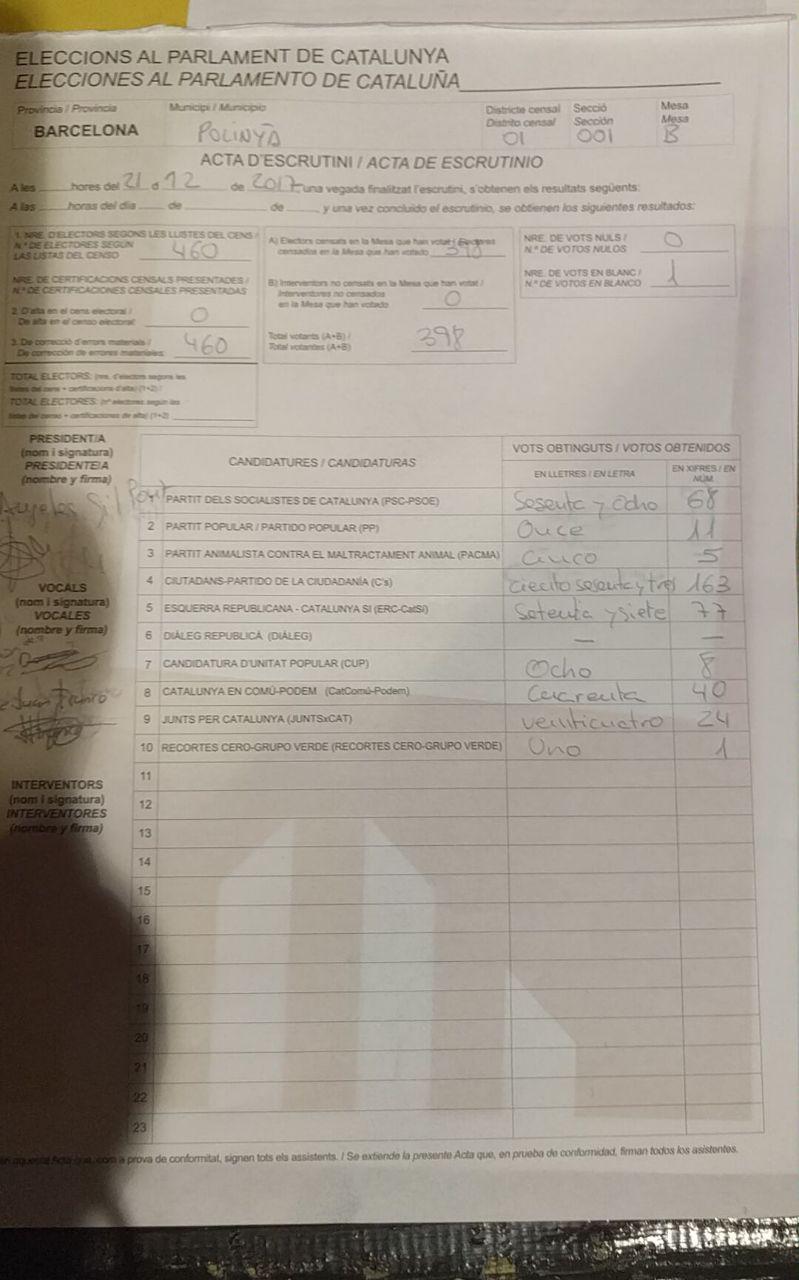 ELECCIONS AL PARLAMENT DE CATALUNYA
ELECCIONES AL PARLAMENTO DE CATALUÑA
Província / Provincia Municipi / Municipio Districte censal Secció Mesa
Distrito censal Sección Mesa
BARCELONA POLINYÀ 01 001 B
ACTA D'ESCRUTINI / ACTA DE ESCRUTINIO
A les hores del 21 d 12 de 2017 una vegada finalitzat l'escrutini, s'obtenen els resultats següents:
A las horas del día de de y una vez concluido el escrutinio, se obtienen los siguientes resultados:
1. NRE. D'ELECTORS SEGONS LES LLISTES DEL CENS /
N.º DE ELECTORES SEGÚN
LAS LISTAS DEL CENSO 460
NRE. DE CERTIFICACIONS CENSALS PRESENTADES /
N.º DE CERTIFICACIONES CENSALES PRESENTADAS
2. D'alta en el cens electoral /
De alta en el censo electoral: 0
3. De correcció d'errors materials /
De corrección de errores materiales: 460
TOTAL ELECTORS: (nre. d'electors segons les
llistes del cens + certificacions d'alta) (1+2) /
TOTAL ELECTORES: (nº electores según las
listas del censo + certificaciones de alta) (1+2)
A) Electors censats en la Mesa que han votat / Electores
censados en la Mesa que han votado 398
B) Interventors no censats en la Mesa que han votat /
Interventores no censados
en la Mesa que han votado 0
Total votants (A+B) /
Total votantes (A+B) 398
NRE. DE VOTS NULS /
N.º DE VOTOS NULOS 0
NRE. DE VOTS EN BLANC /
N.º DE VOTOS EN BLANCO 1
PRESIDENT/A
(nom i signatura)
PRESIDENTE/A
(nombre y firma)
VOCALS
(nom i signatura)
VOCALES
(nombre y firma)
INTERVENTORS
(nom i signatura)
INTERVENTORES
(nombre y firma)
CANDIDATURES / CANDIDATURAS VOTS OBTINGUTS / VOTOS OBTENIDOS
EN LLETRES / EN LETRA EN XIFRES / EN NÚM.
PARTIT DELS SOCIALISTES DE CATALUNYA (PSC-PSOE) Sesenta y Ocho 68
2 PARTIT POPULAR / PARTIDO POPULAR (PP) Once 11
3 PARTIT ANIMALISTA CONTRA EL MALTRACTAMENT ANIMAL (PACMA) Cinco 5
4 CIUTADANS-PARTIDO DE LA CIUDADANÍA (C's) ciecito sesenta y tres 163
5 ESQUERRA REPUBLICANA - CATALUNYA SÍ (ERC-CatSí) Setenta y siete 77
6 DIÀLEG REPUBLICÀ (DIÀLEG) — —
7 CANDIDATURA D'UNITAT POPULAR (CUP) Ocho 8
8 CATALUNYA EN COMÚ-PODEM (CatComú-Podem) Cuarenta 40
9 JUNTS PER CATALUNYA (JUNTSxCAT) veinticuatro 24
10 RECORTES CERO-GRUPO VERDE (RECORTES CERO-GRUPO VERDE) Uno 1
11
12
13
14
15
16
17
18
19
20
21
22
23
com a prova de conformitat, signen tots els assistents. / Se extiende la presente Acta que, en prueba de conformidad, firman todos los asistentes.